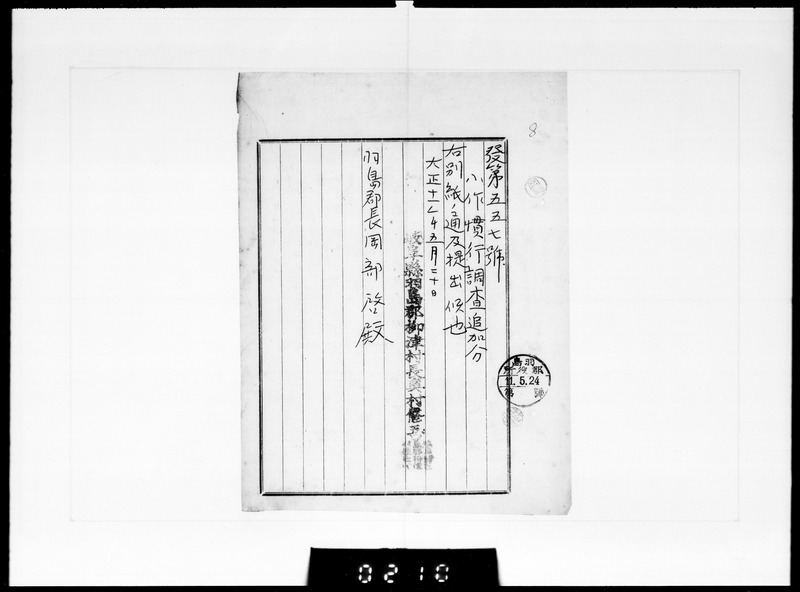 8
發第五五七號
小作慣行調査追加分
右別紙ノ通及提出候也
大正十一年五月二十日
岐阜縣羽島郡柳津村長
羽島郡長岡部啓殿
羽島
郡役所
11.5.24
第 號
0210